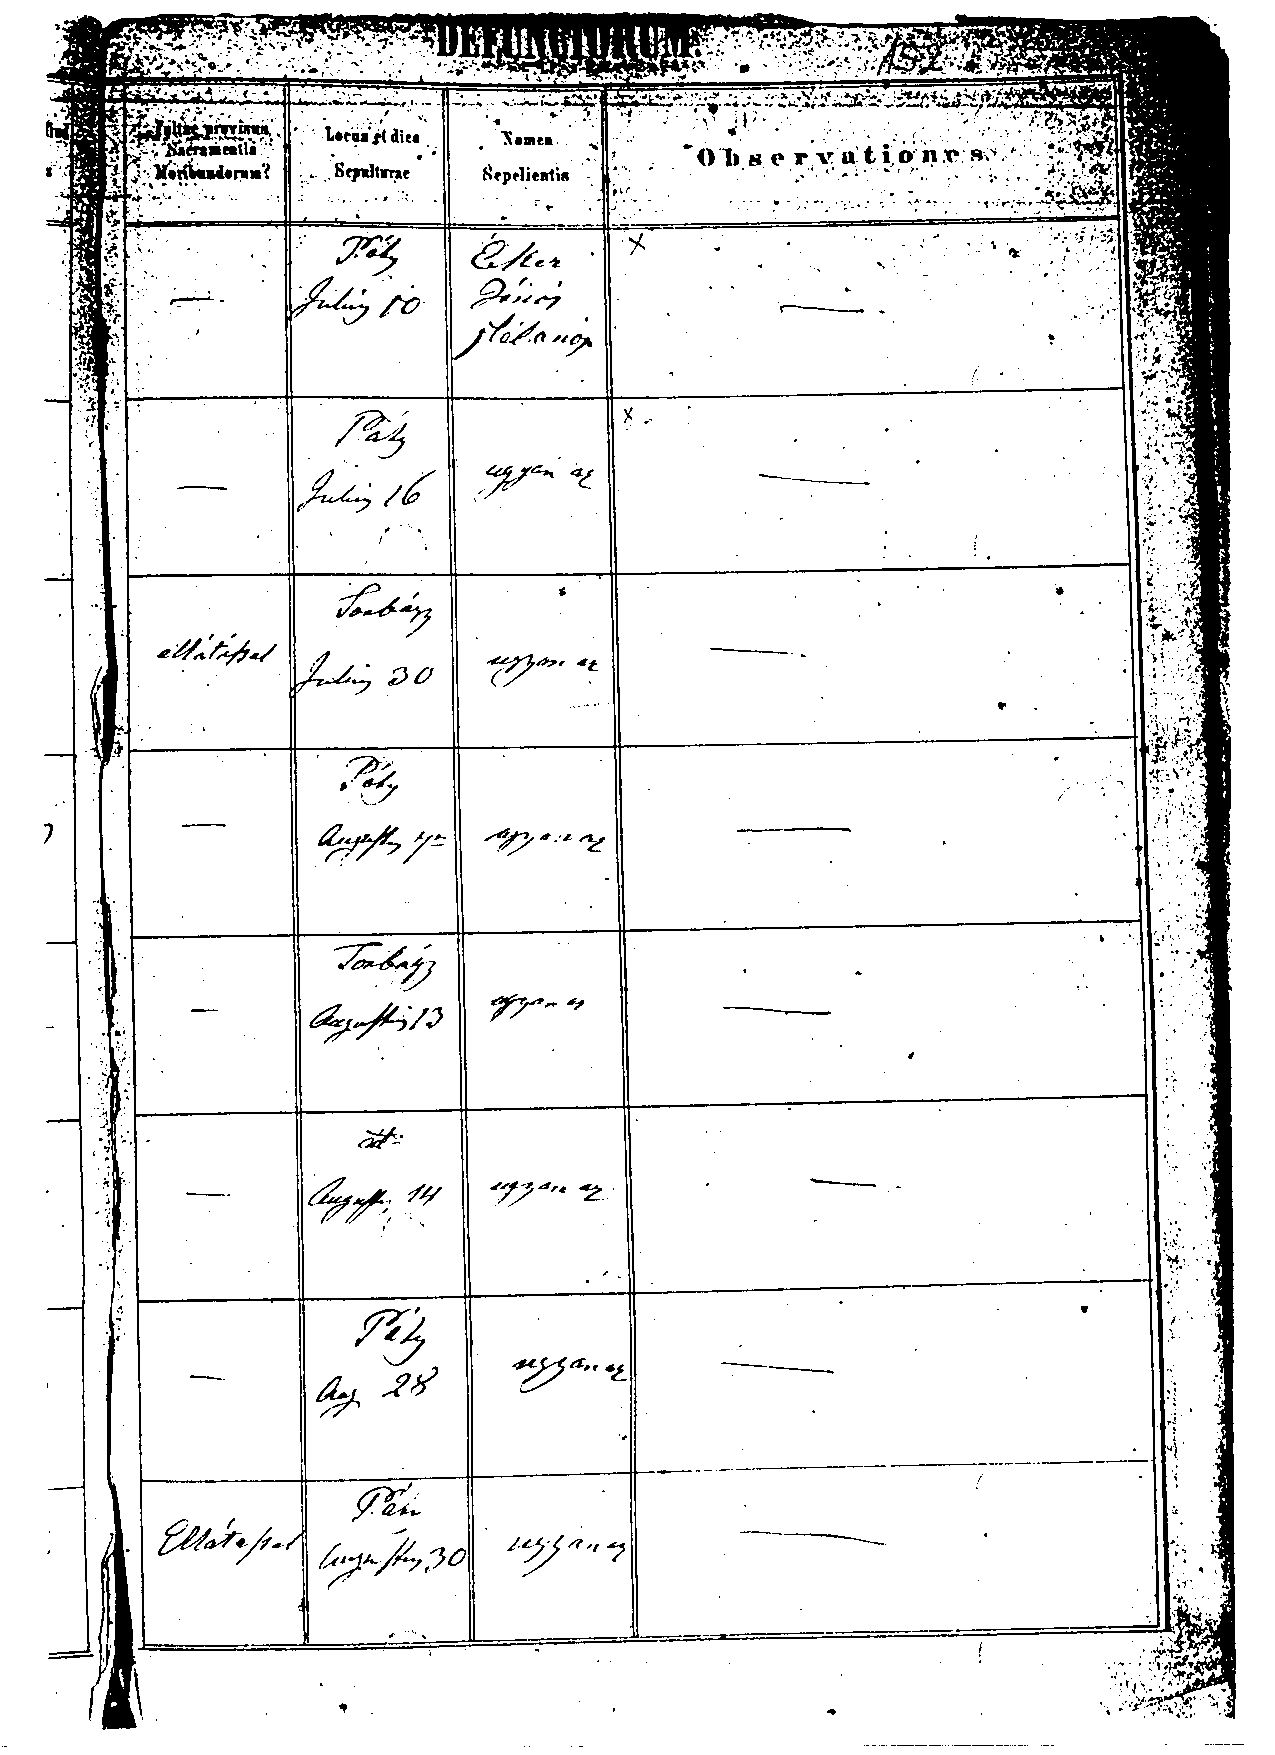 DEFUNCTORUM
152
Initne provisus
Sacramentis
Moribundorum?
Locus et dies
Sepulturae
Nomen
Sepelientis
Observationes
Páty
Julius 10
Éker
János
plébános
x
—
—
Páty
Julius 16
ugyan az
x
—
—
Torbágy
Julius 30
ellátással
ugyan az
—
Páty
Augustus 4én
ugyan az
—
—
Torbágy
Augustus 13
ugyan az
—
—
Augustus 14
ugyan az
—
—
Páty
Aug 28
ugyan az
—
—
Ellátással
Augustus 30
ugyan az
—